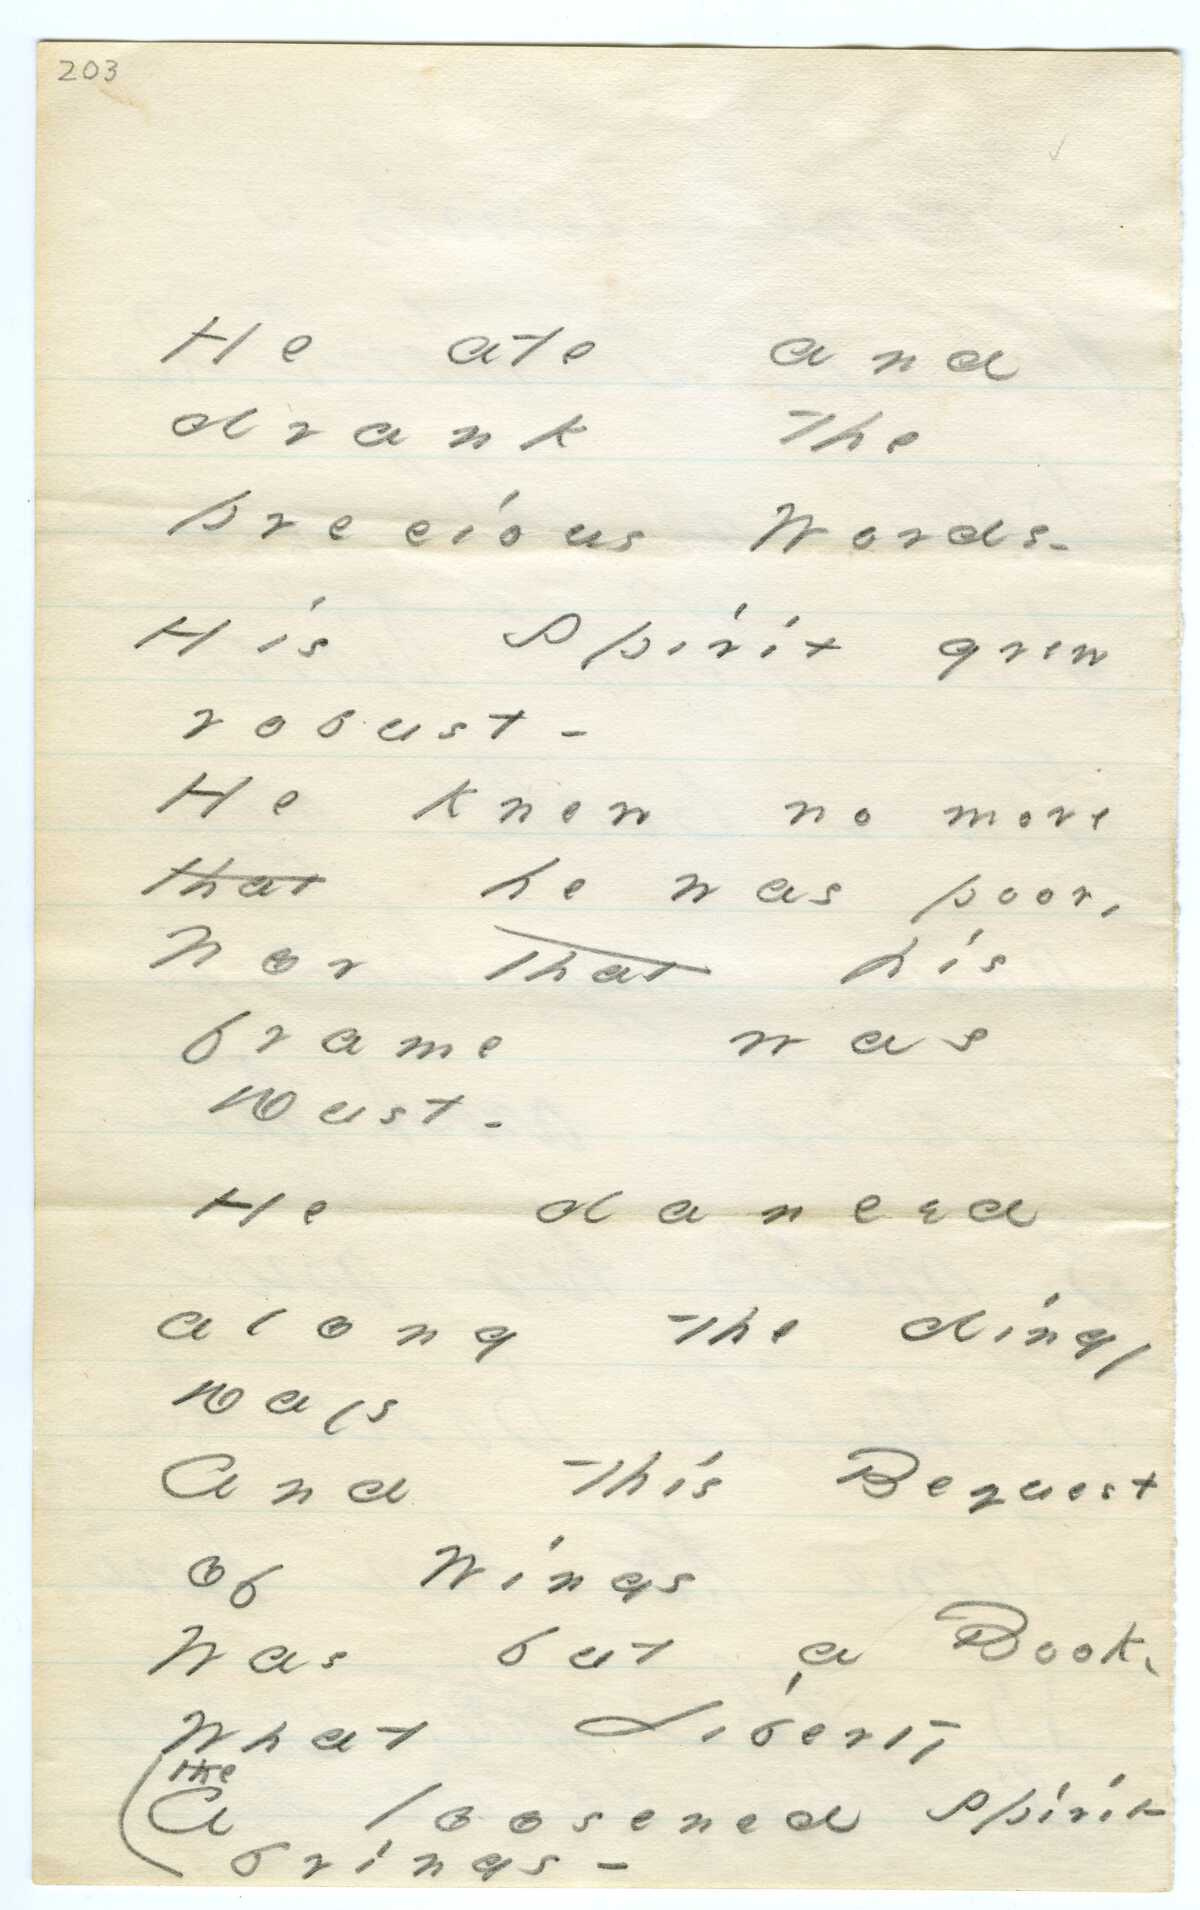 203
He ate and
drank the
precious Words -
His Spirit grew
robust -
He knew no more
that he was poor,
Nor that his
frame was
Dust -
He danced
along the dingy
Days
And this Bequest
of Wings
Was but a Book -
What Liberty
the
A loosened Spirit
brings -